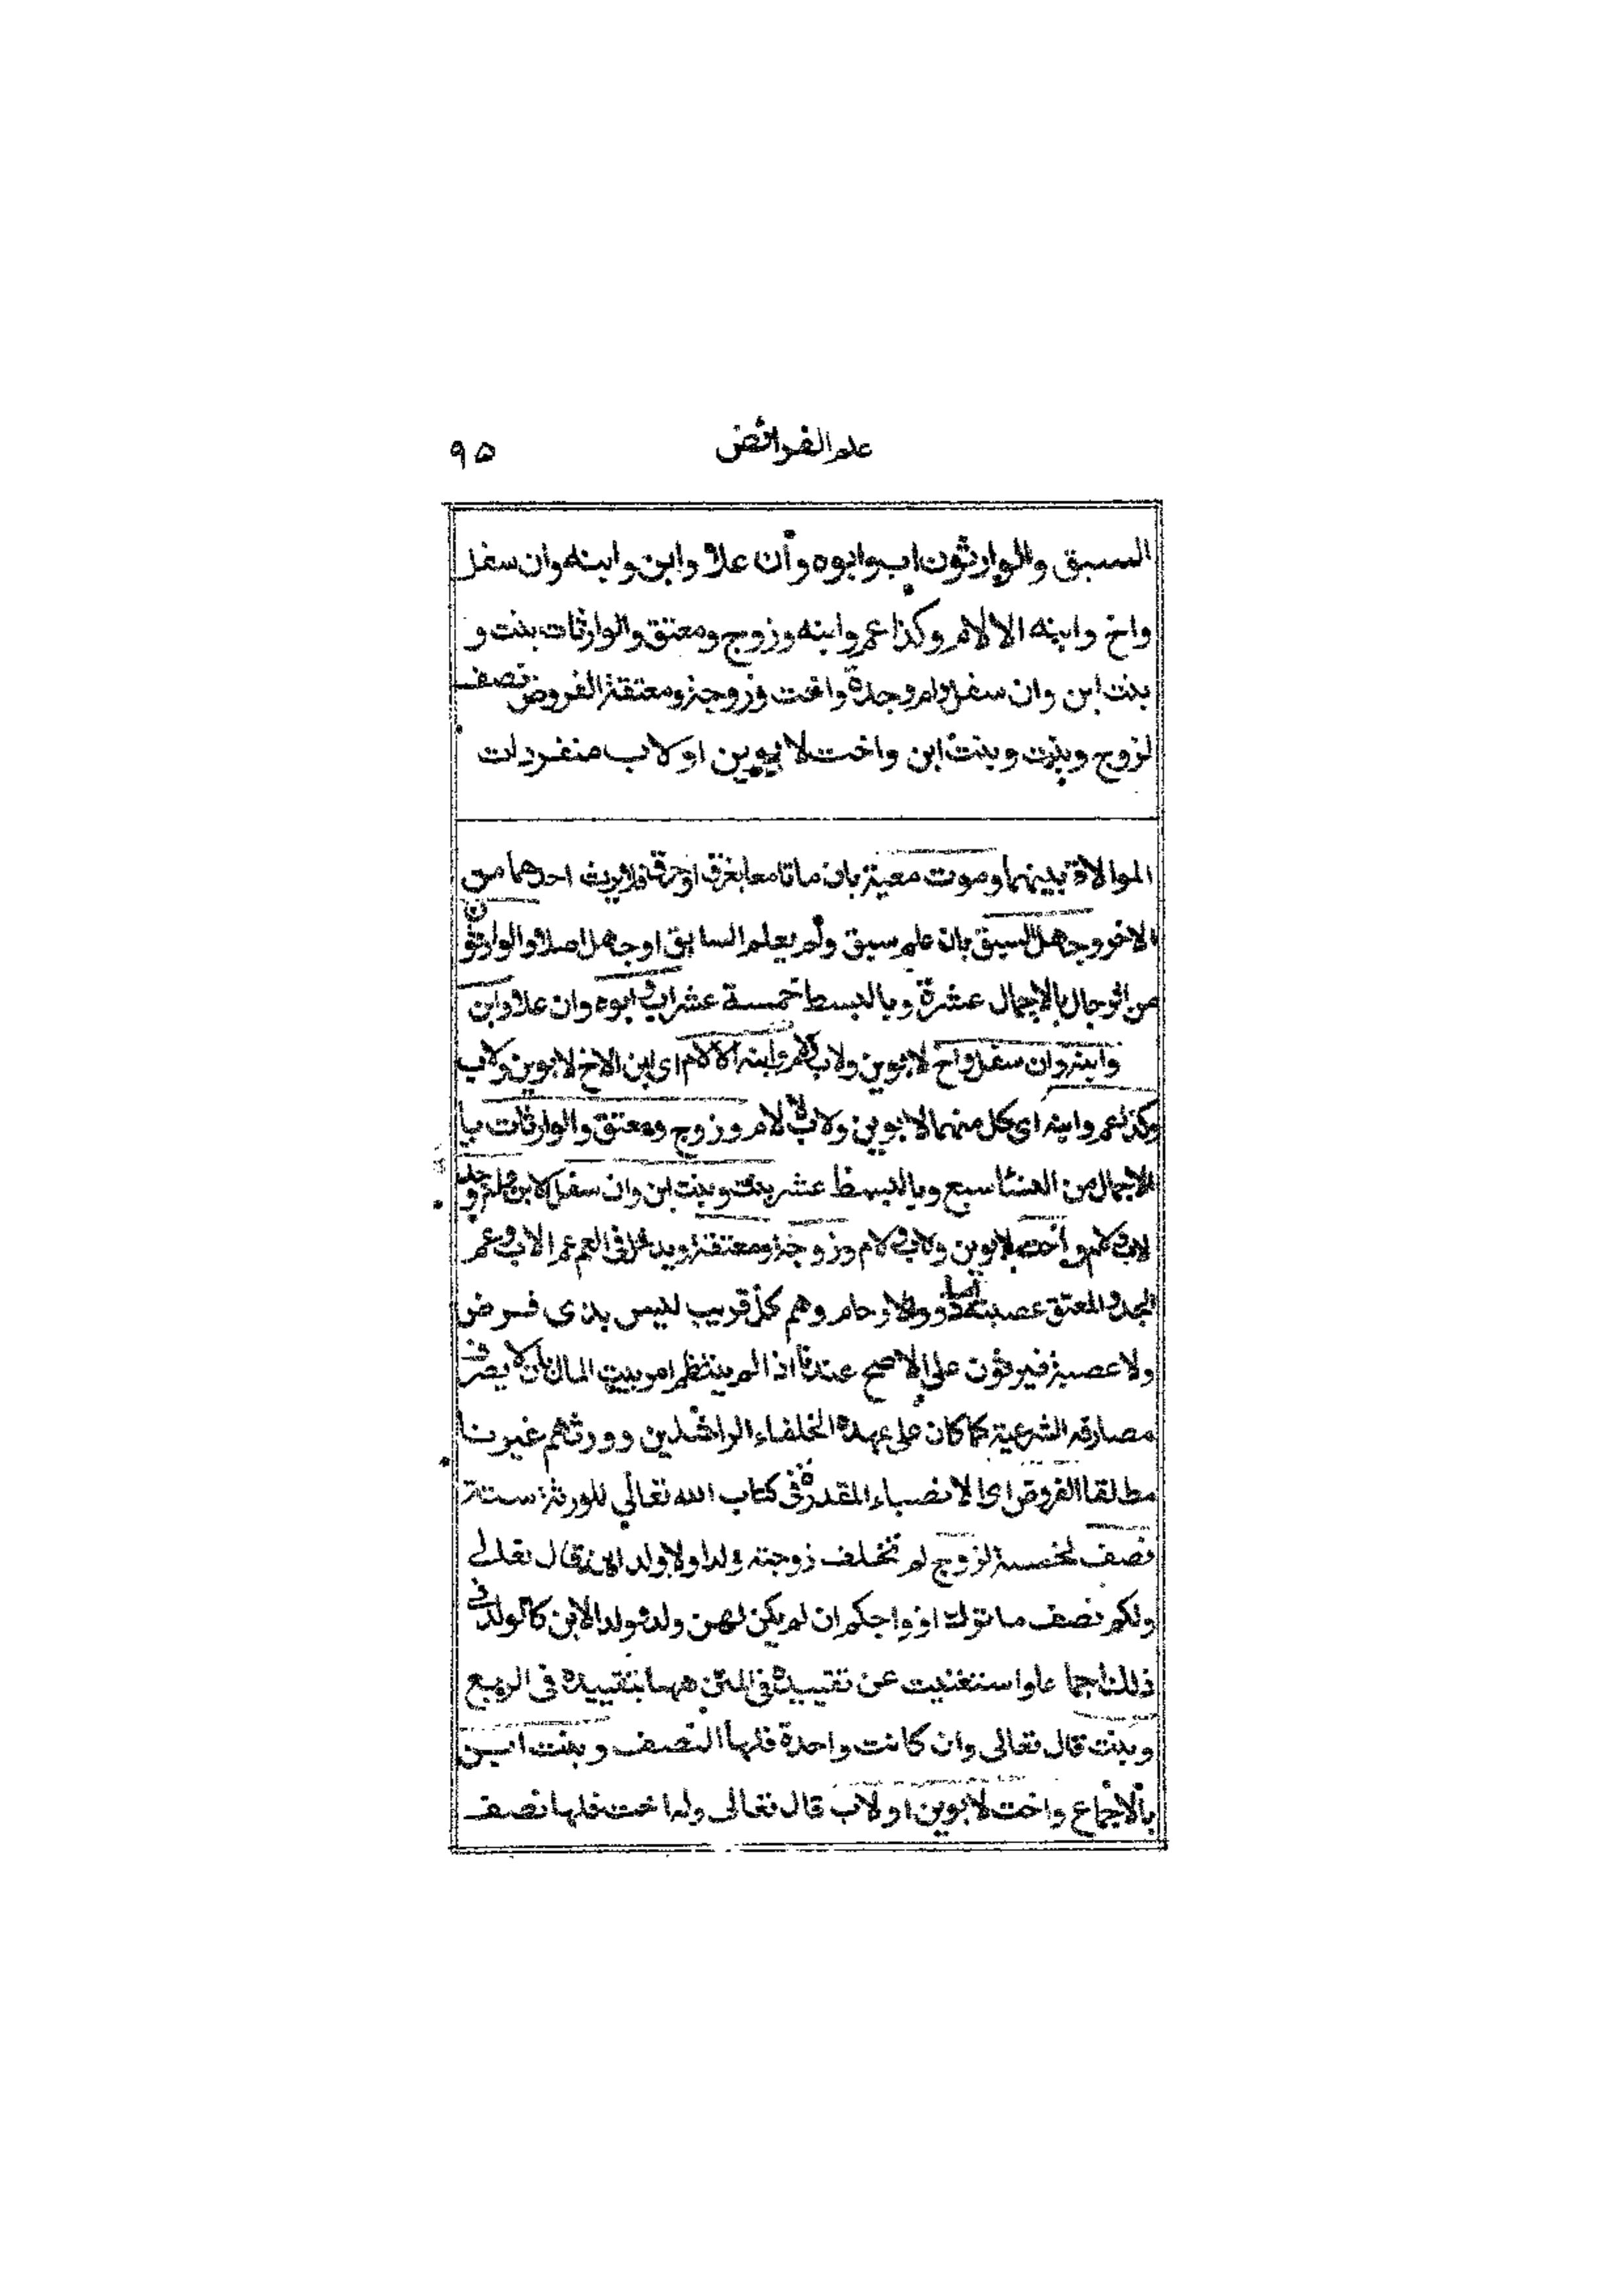 علم الفرائض ٩٥
السبق والوارثون اب وابوه وأن علا وابن وابنه وان سفل
واخ وابنه الا لام وكذا عم وابنه وزوج ومعتق والوارثات بنت و
بنت ابن وان سفل وام وجدة واخت وزوجة ومعتقة الفروض نصف
لزوج وبنت وبنت ابن واخت لابوين او لاب منفردات
الموالاة بينهما وموت معية بان ماتا معا بغرق او حرق فلا يرث احدهما من
الاخر وجهل السبق بان علم سبق ولم يعلم السابق او جهل اصلا والوارثون
من الرجال بالاجمال عشرة وبالبسط خمسة عشر اب وابوه وان علا وابن
وابنه وان سفل واخ لابوين ولاب ولام وابنه الا لام اى ابن الاخ لابوين ولاب
وكذا عم وابنه اى كل منهما لابوين ولاب لا لام وزوج ومعتق والوارثات با
لاجمال من النساء سبع وبالبسط عشر بنت وبنت ابن وان سفل الابن وام وجدة
لاب ولام واخت لابوين ولاب ولام وزوجة ومعتقة ويدخل فى العم عم الاب وعم
الجد والمعتق عصبته ذوو الارحام وهم كل قريب ليس بذى فرض
ولا عصبة فيرثون على الاصح عندنا اذا لم ينتظم امر بيت المال بان لا يصرف فى
مصارفه الشرعية كما كان على عهدة الخلفاء الراشدين وورثهم غيرنا
مطلقا الفروض اى الانصباء المقدرة فى كتاب الله تعالى للورثة ستة
نصف لخمسة لزوج لم تخلف زوجته ولدا ولا ولد ابن قال تعالى
ولكم نصف ما ترك ازواجكم ان لم يكن لهن ولد وولد الابن كالولد فى
ذلك اجماعا واستغنيت عن تقييده فى المتن ههنا بتقييده فى الربع
وبنت قال تعالى وان كانت واحدة فلها النصف وبنت ابن
بالاجماع واخت لابوين او لاب قال تعالى وله اخت فلها نصف